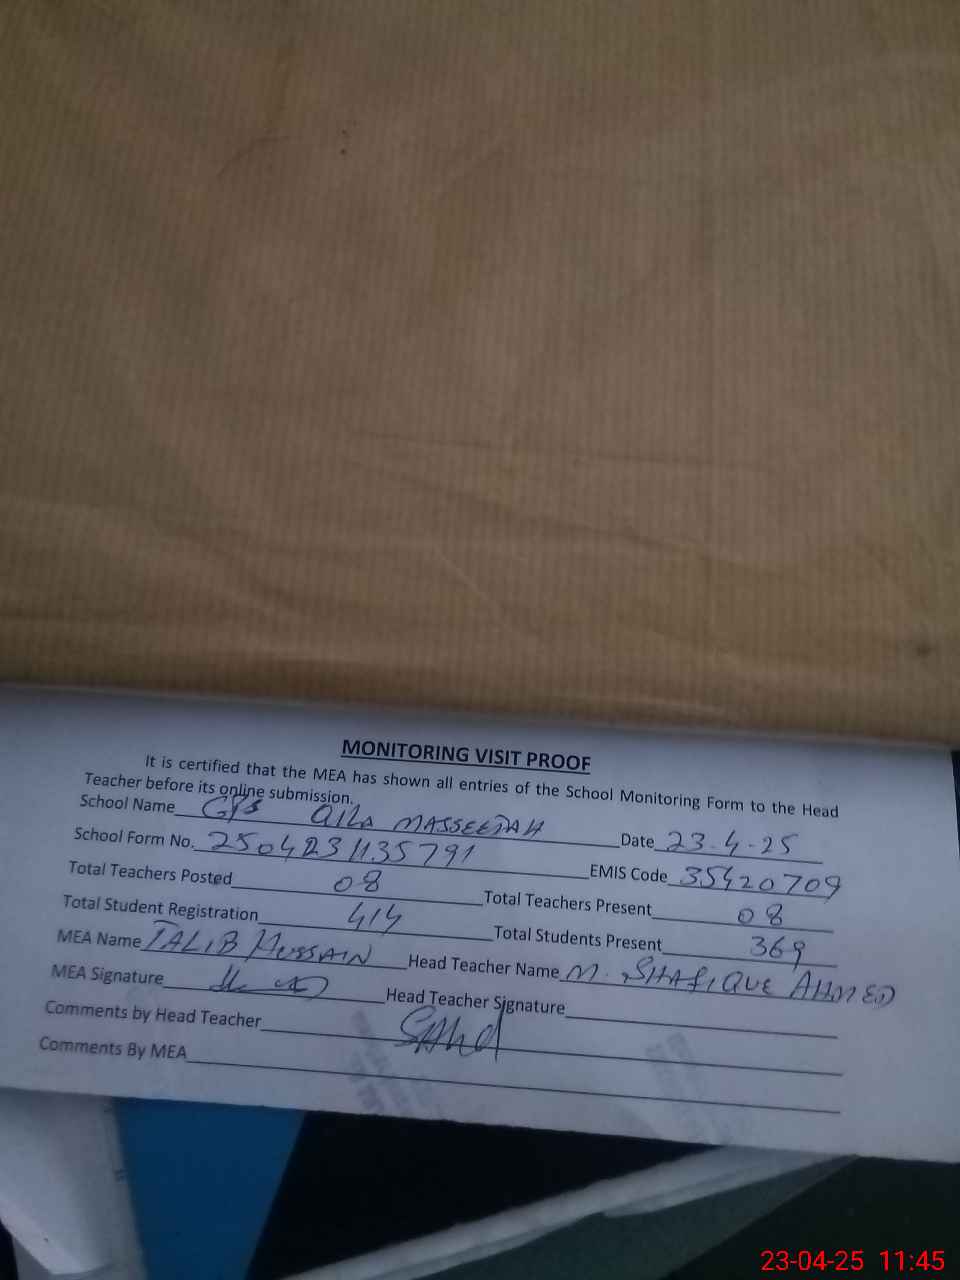 MONITORING VISIT PROOF
It is certified that the MEA has shown all entries of the School Monitoring Form to the Head
Teacher before its online submission.
School Name GPS QILA MASSEETAH Date 23-4-25
School Form No. 2504231135791 EMIS Code 35420709
Total Teachers Posted 08 Total Teachers Present 08
Total Student Registration 414 Total Students Present 369
MEA Name TALIB HUSSAIN Head Teacher Name M. SHAFIQUE AHMED
MEA Signature Head Teacher Signature
Comments by Head Teacher
Comments By MEA
23-04-25 11:45